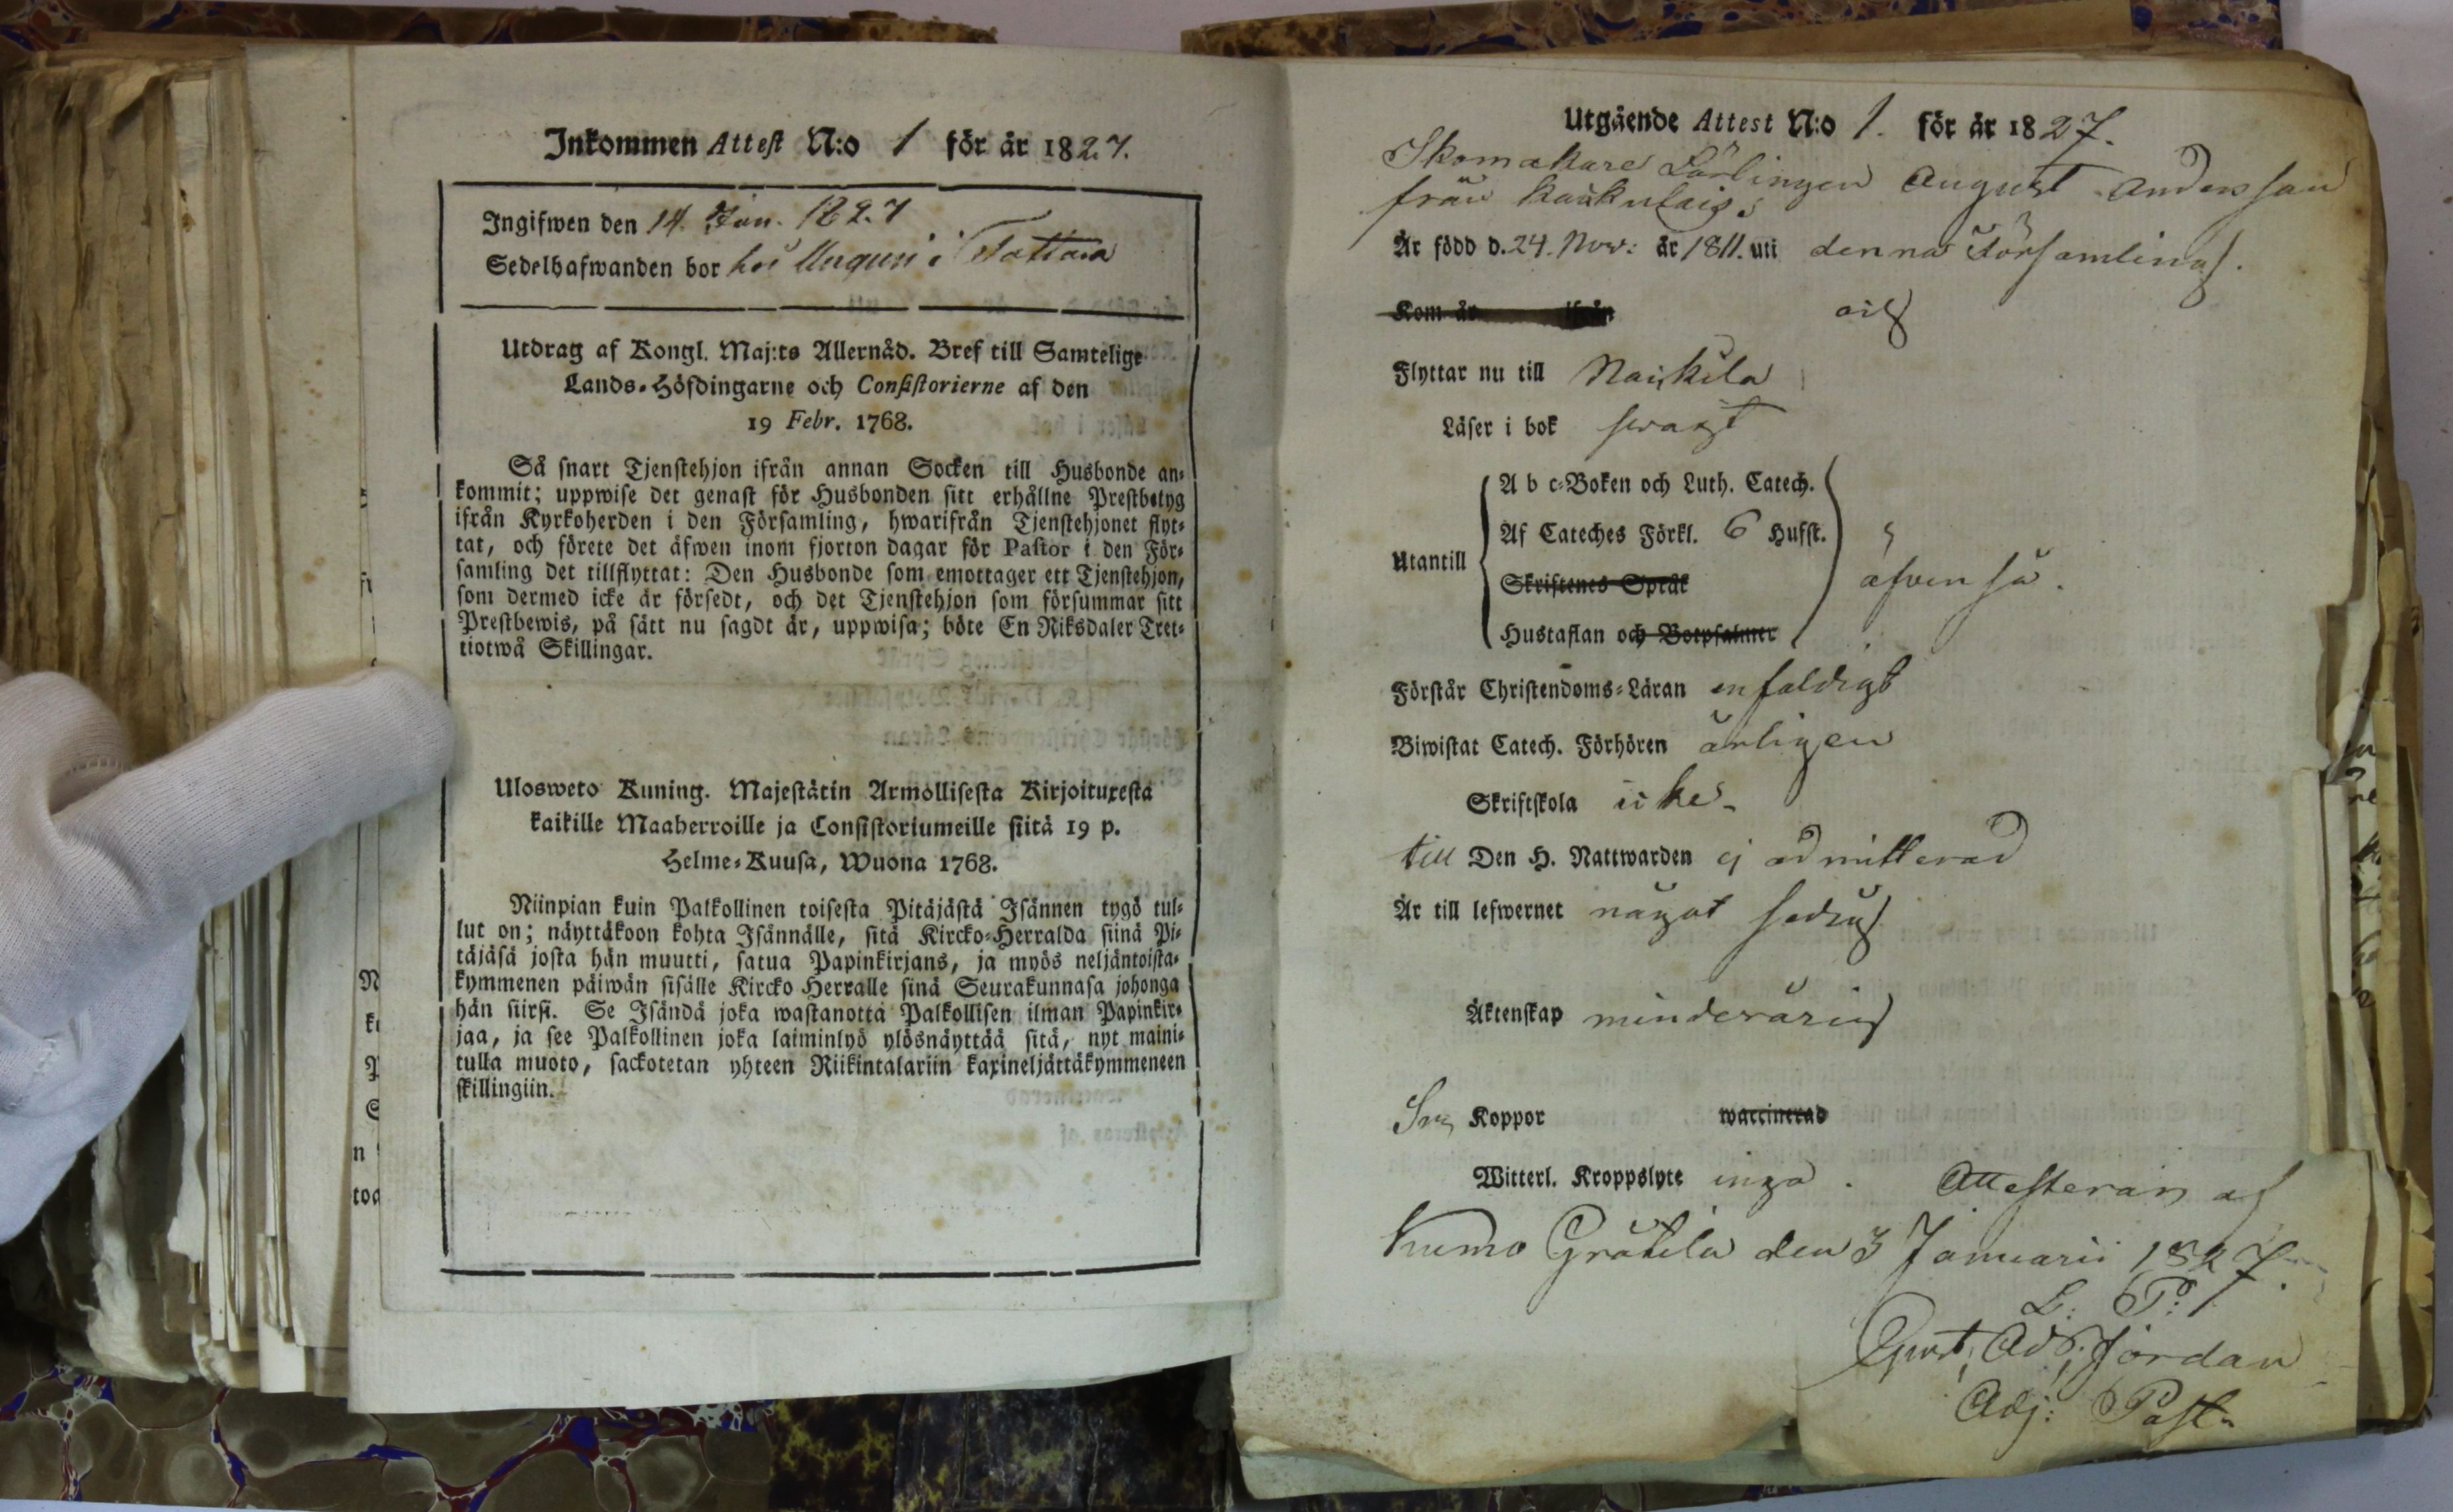 Inkommen Attest N:o 1 för år 1827.
Ingifwen den 14. Jan. 1827
Sedelhafwanden bor hos Unguri i Tattara
Utdrag af Kongl. Maj:ts Allernåd. Bref till Samtelige
Lands-Höfdingarne och Consistorierne af den
19 Febr. 1768.
Så snart Tjenstehjon ifrån annan Socken till Husbonde an-
kommit; uppwise det genast för Husbonden sitt erhållne Prestbetyg
ifrån Kyrkoherden i den Församling, hwarifrån Tjenstehjonet flyt-
tat, och förete det äfwen inom fjorton dagar för Pastor i den För-
samling det tillflyttat: Den Husbonde som emottager ett Tjenstehjon,
som dermed icke är försedt, och det Tjenstehjon som försummar sitt
Prestbewis, på sätt nu sagdt är, uppwisa; böte En Riksdaler Tret-
tiotwå Skillingar.
Ulosweto Kuning. Majestätin Armollisesta Kirjoituxesta
kaikille Maaherroille ja Consistoriumeille siitä 19 p.
Helme-Kuusa, Wuona 1768.
Niinpian kuin Palkollinen toisesta Pitäjästä Isännen tygö tul-
lut on; näyttäkoon kohta Isännälle, sitä Kircko-Herralda siinä Pi-
täjäsä josta hän muutti, satua Papinkirjans, ja myös neljäntoista-
kymmenen päiwän sisälle Kircko Herralle sinä Seurakunnasa johonga
hän siirsi. Se Isändä joka wastanotta Palkollisen ilman Papinkir-
jaa, ja see Palkollinen joka laiminlyö ylösnäyttää sitä, nyt maini-
tulla muoto, sackotetan yhteen Riikintalariin kaxineljättäkymmeneen
skillingiin.
Utgående Attest N:o 1. för år 1827.
Skomakare Lärlingen August Andersson
från
Är född d. 24. Nov: år 1811. uti denna Församling.
Kom år ifrån
Flyttar nu till Nackila
Läser i bok swagt
A b c-Boken och Luth. Catech.
Af Cateches Förkl. 6 Hufst.
Utantill
Skriftenes Språk
äfven så.
Hustaflan och Botpsalmer
Förstår Christendoms-Läran enfaldigt
Biwistat Catech. Förhören årligen
Skriftskola icke
till Den H. Nattwarden ej admitterad
Är till lefwernet något sedig
Äktenskap minderårig
Koppor waccinerad
Witterl. Kroppslyte inga. Attesteras af
Kumo Gråtila den 3 Januarii 1827.
L. P:
Gust. Ad. Jordan
Adj: Past.